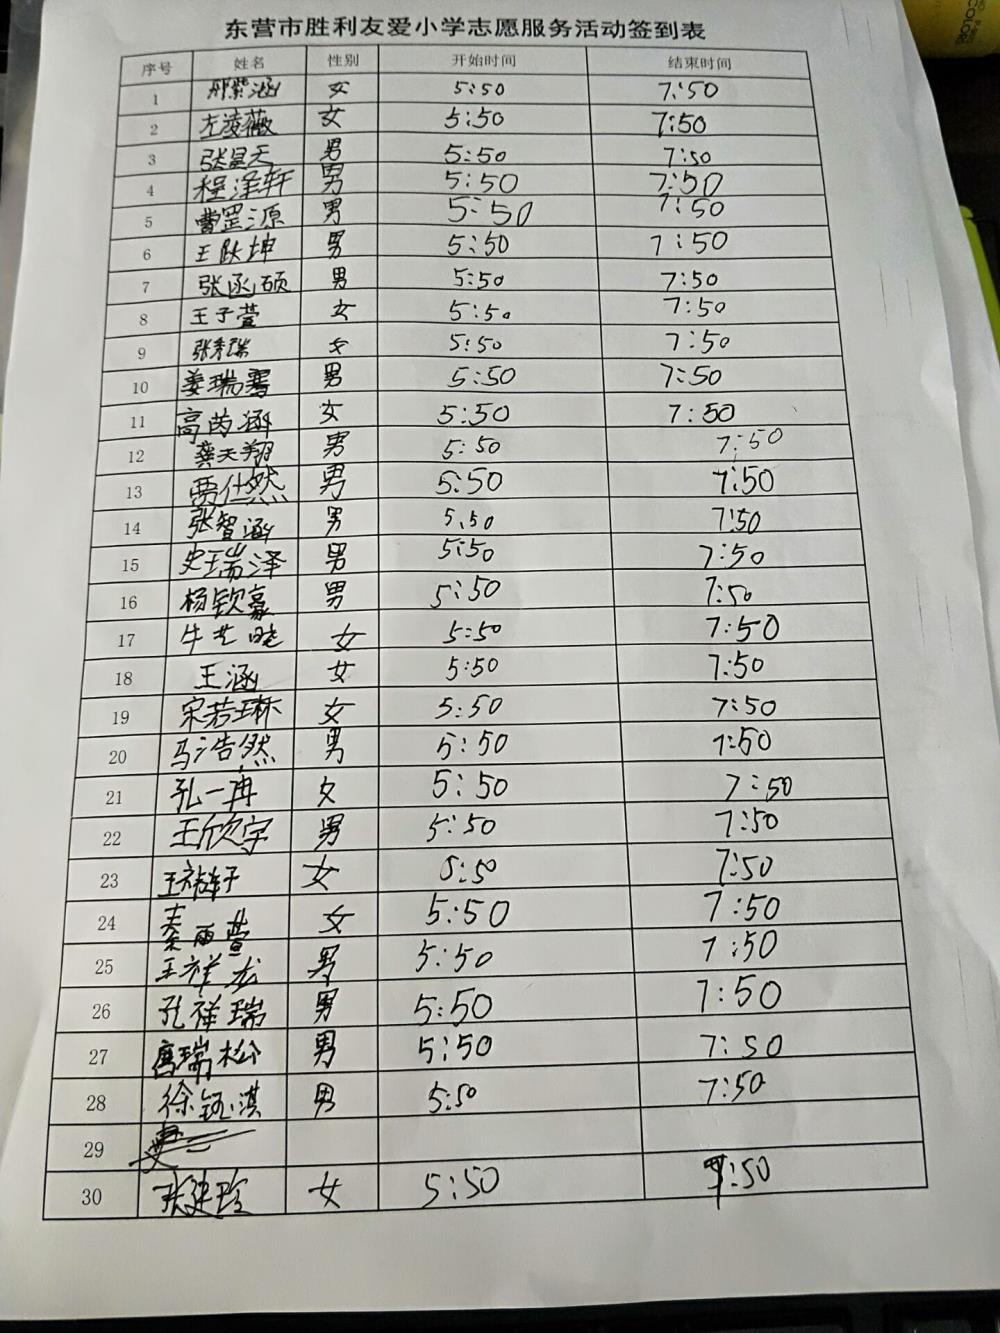 东营市胜利友爱小学志愿服务活动签到表
序号 姓名 性别 开始时间 结束时间
1 邢紫涵 女 5:50 7:50
2 左凌薇 女 5:50 7:50
3 张昊天 男 5:50 7:50
4 程泽轩 男 5:50 7:50
5 曹罡源 男 5:50 7:50
6 王 坤 男 5:50 7:50
7 张函硕 男 5:50 7:50
8 王子萱 女 5:50 7:50
9 张秀瑞 女 5:50 7:50
10 姜瑞骞 男 5:50 7:50
11 高茵涵 女 5:50 7:50
12 龚天翔 男 5:50 7:50
13 贾仕然 男 5:50 7:50
14 张智涵 男 5:50 7:50
15 史瑞泽 男 5:50 7:50
16 杨钦豪 男 5:50 7:50
17 牛艺晓 女 5:50 7:50
18 王涵 女 5:50 7:50
19 宋若琳 女 5:50 7:50
20 马浩然 男 5:50 7:50
21 孔一冉 女 5:50 7:50
22 王欣宇 男 5:50 7:50
23 王 女 5:50 7:50
24 秦雨萱 女 5:50 7:50
25 王祥龙 男 5:50 7:50
26 孔祥瑞 男 5:50 7:50
27 唐瑞松 男 5:50 7:50
28 徐钰淇 男 5:50 7:50
29
30 张建玲 女 5:50 7:50